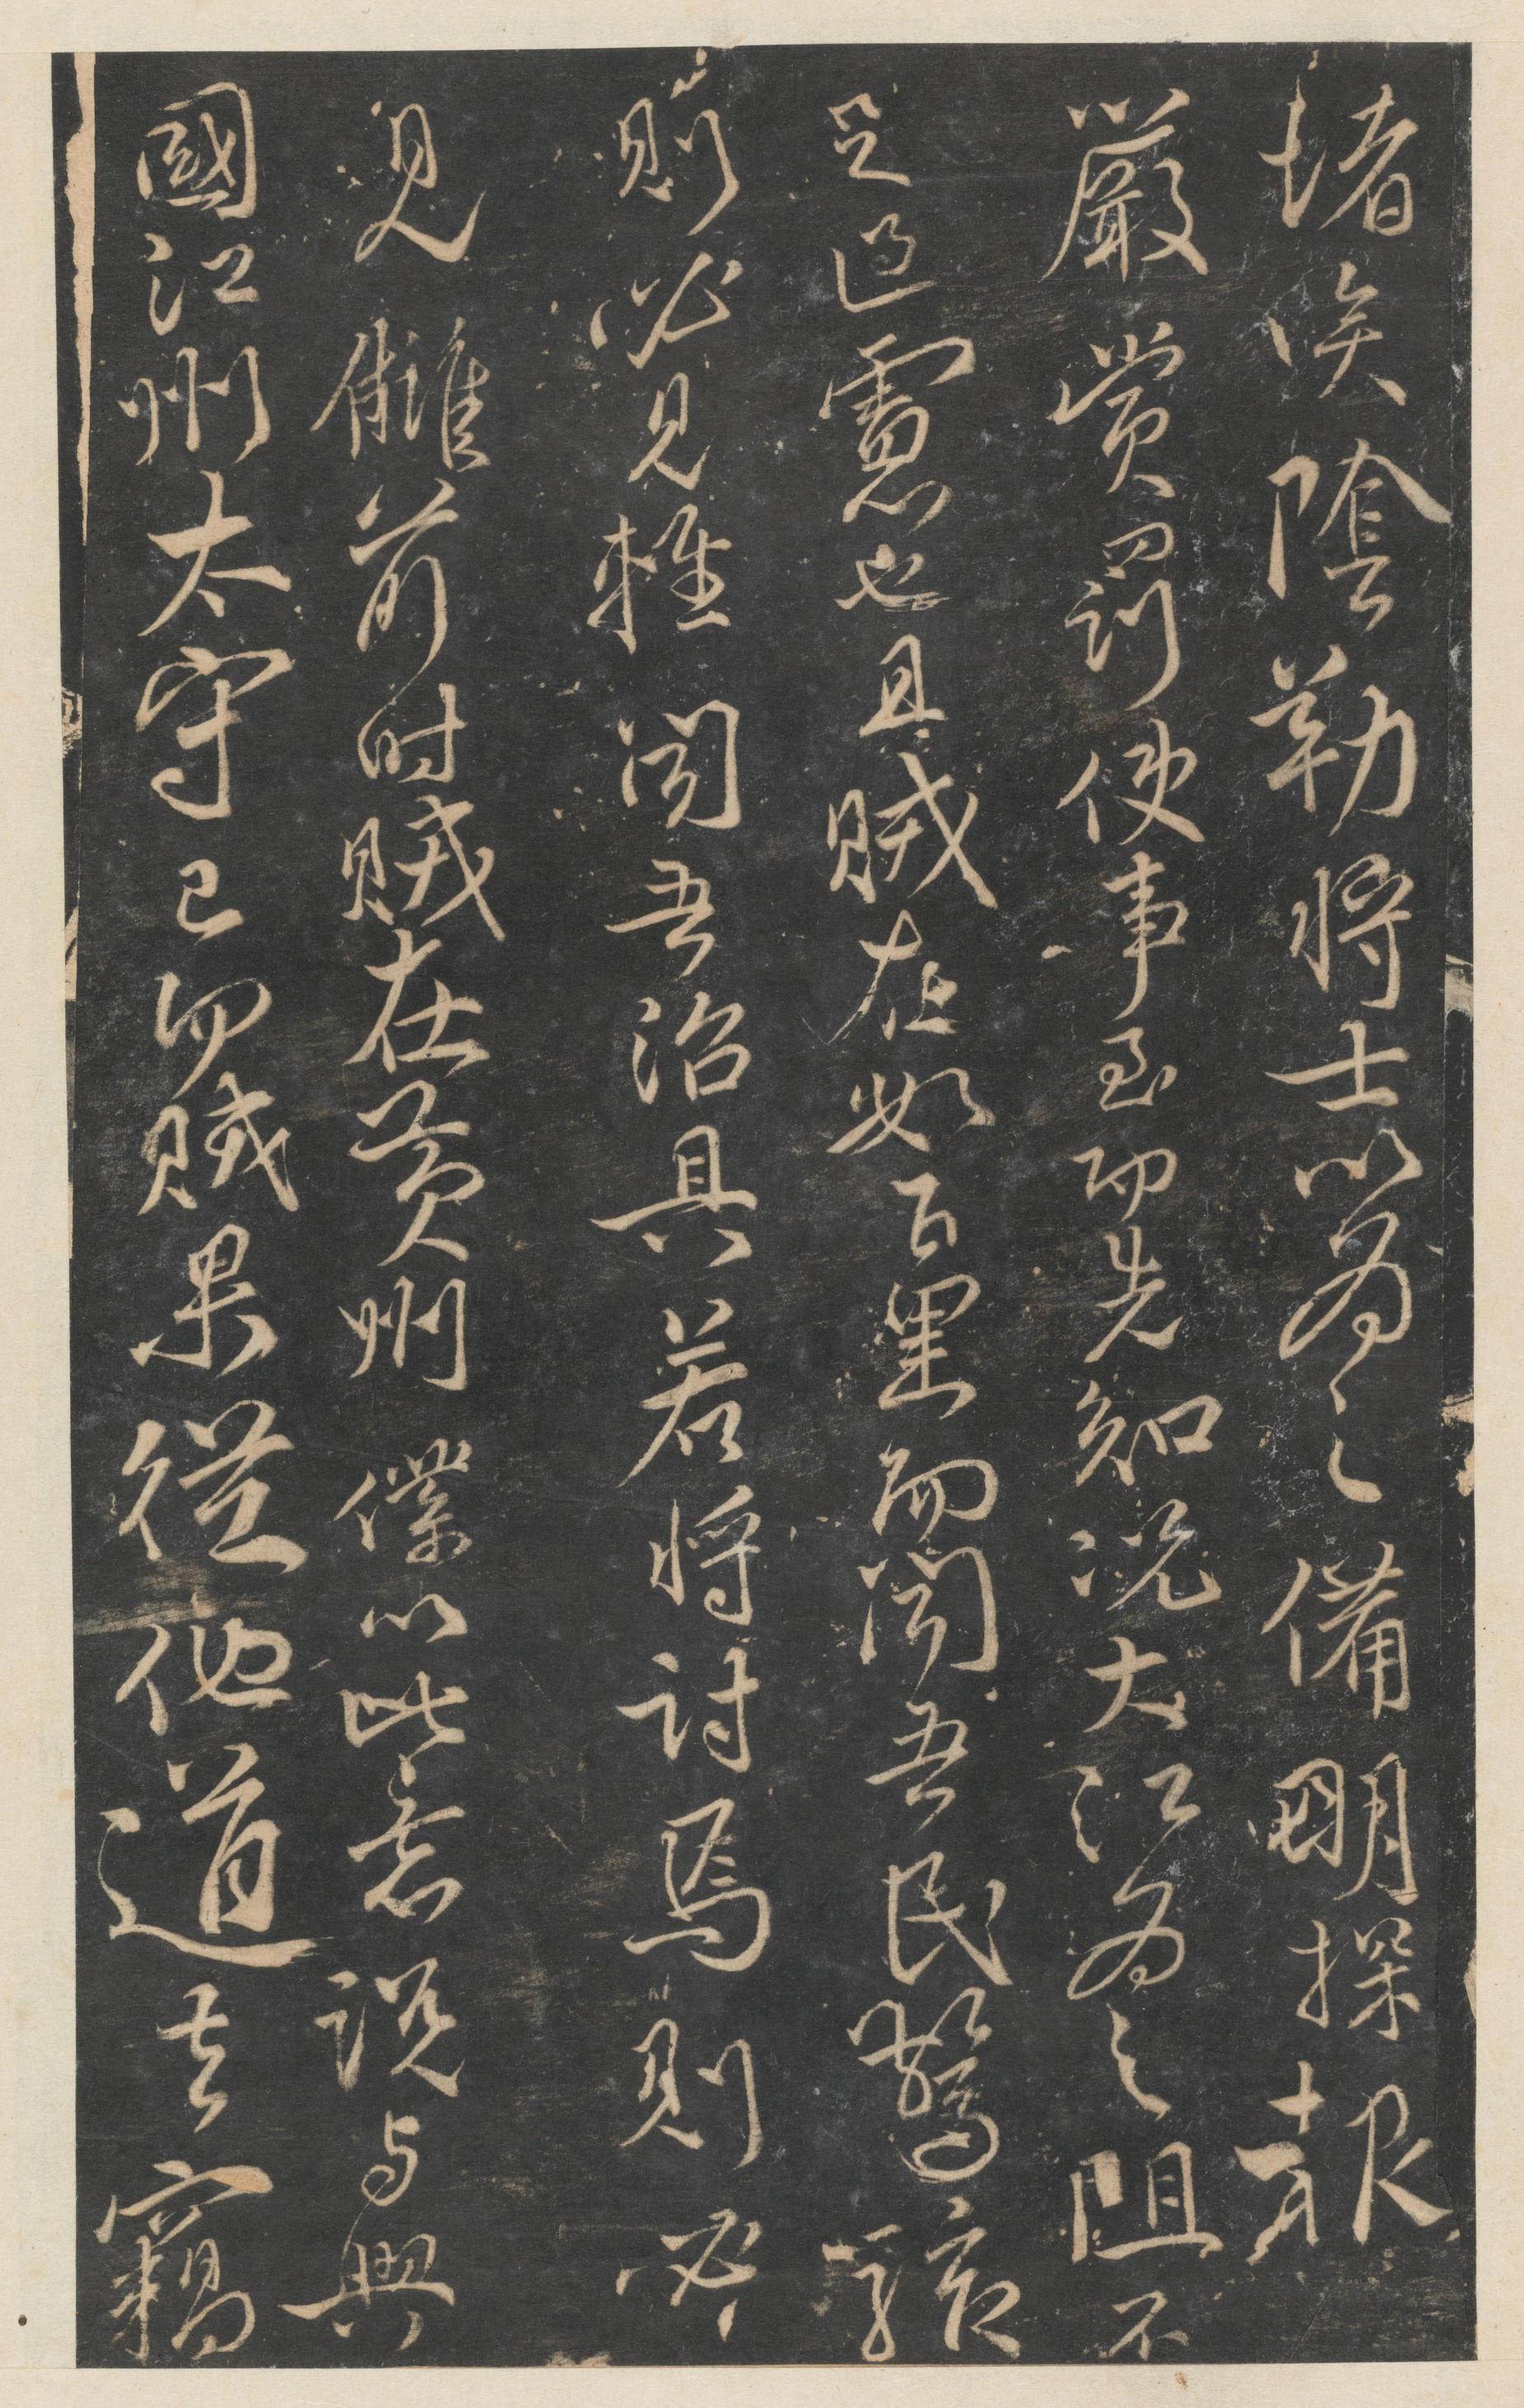 堵俟陰勒將士以為之備明探報
嚴賞罰使事至而先知況大江為之阻不
足過慮也且賊在數百里而聞吾民驚駭
則必見輕聞吾治具若將討焉則必
見讎前時賊在黃州僕以此意說与興
國江州太守已而賊果從他道去竊